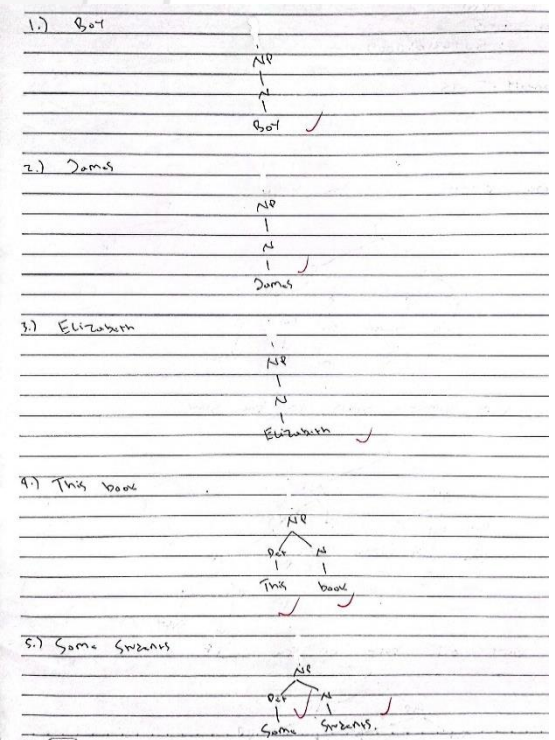 1.) Boy
NP
N
Boy
2.) James
NP
N
James
3.) Elizabeth
NP
N
Elizabeth
4.) This book
NP
Det N
This book
5.) Some Students
NP
Det N
Some Students.